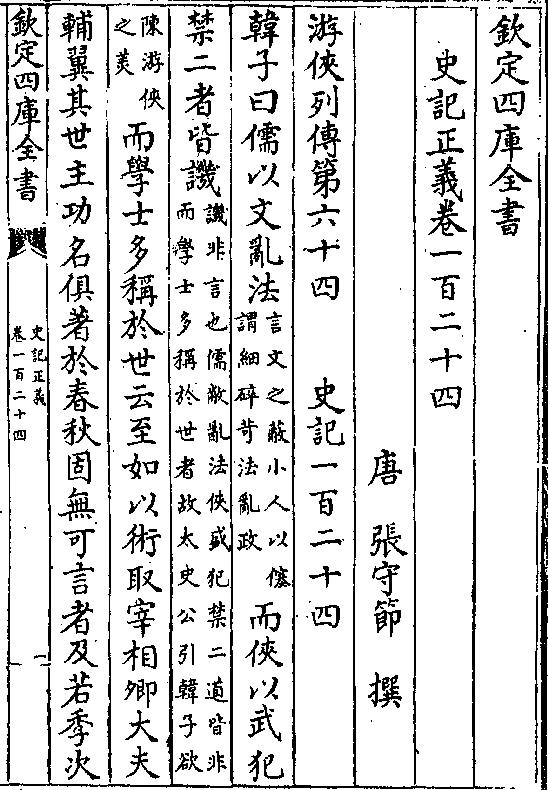 欽定四庫全書
史記正義卷一百二十四
唐 張守節 撰
游俠列傳第六十四 史記一百二十四
韓子曰儒以文亂法言文之蔽小人以僿謂細碎苛法亂政而俠以武犯
禁二者皆譏譏非言也儒敝亂法俠盛犯禁二道皆非而學士多稱於世者故太史公引韓子欲
陳游俠之美而學士多稱於世云至如以術取宰相卿大夫
輔翼其世主功名俱著於春秋固無可言者及若季次
欽定四庫全書
史記正義
卷一百二十四
一